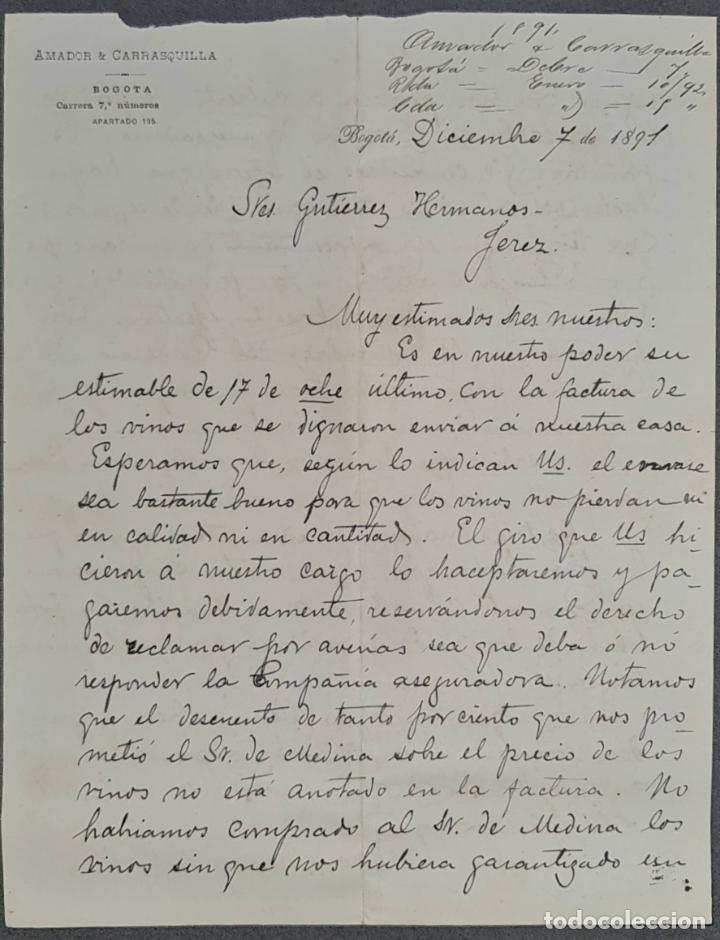 AMADOR & CARRASQUILLA
BOGOTA
Carrera 7.ª números
APARTADO 195.
1891.
Amador & Carrasquilla
Bogotá = Dcbre — 7
Rbda — Enero — 10/92
Cda — " — 15 "
Bogotá, Diciembre 7 de 1891
Sres. Gutierrez Hermanos-
Jerez.
Muy estimados sres. nuestros:
Es en nuestro poder su
estimable de 17 de ocbe último, con la factura de
los vinos que se dignaron enviar á nuestra casa.
Esperamos que, según lo indican Us. el envase
sea bastante bueno para que los vinos no pierdan ni
en calidad ni en cantidad. El giro que Us hi-
cieron á nuestro cargo lo haceptaremos y pa-
garemos debidamente, reservándonos el derecho
de reclamar por averías sea que deba ó nó
responder la Compañía aseguradora. Notamos
que el descuento de tanto por ciento que nos pro-
metió el Sr. de Medina sobre el precio de los
vinos no está anotado en la factura. No
habiamos comprado al Sr. de Medina los
vinos sin que nos hubiera garantizado un
todocoleccion.net